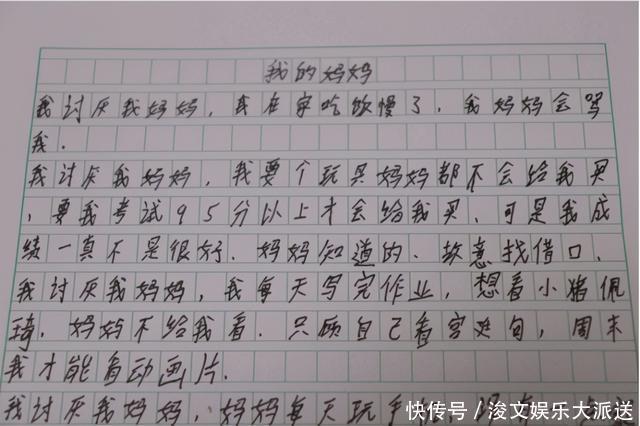 我的妈妈
我讨厌我妈妈，我在家吃饭慢了，我妈妈会骂
我.
我讨厌我妈妈，我要个玩具妈妈都不会给我买
，要我考试95分以上才会给我买、可是我成
绩一真不是很好、妈妈知道的、故意找借口、
我讨厌我妈妈，我每天写完作业，想看小猪佩
琦、妈妈不给我看、只顾自己看宫廷句，周末
我才能看动画片.
我讨厌我妈妈、妈妈每天玩手
快传号 / 浚文娱乐大派送